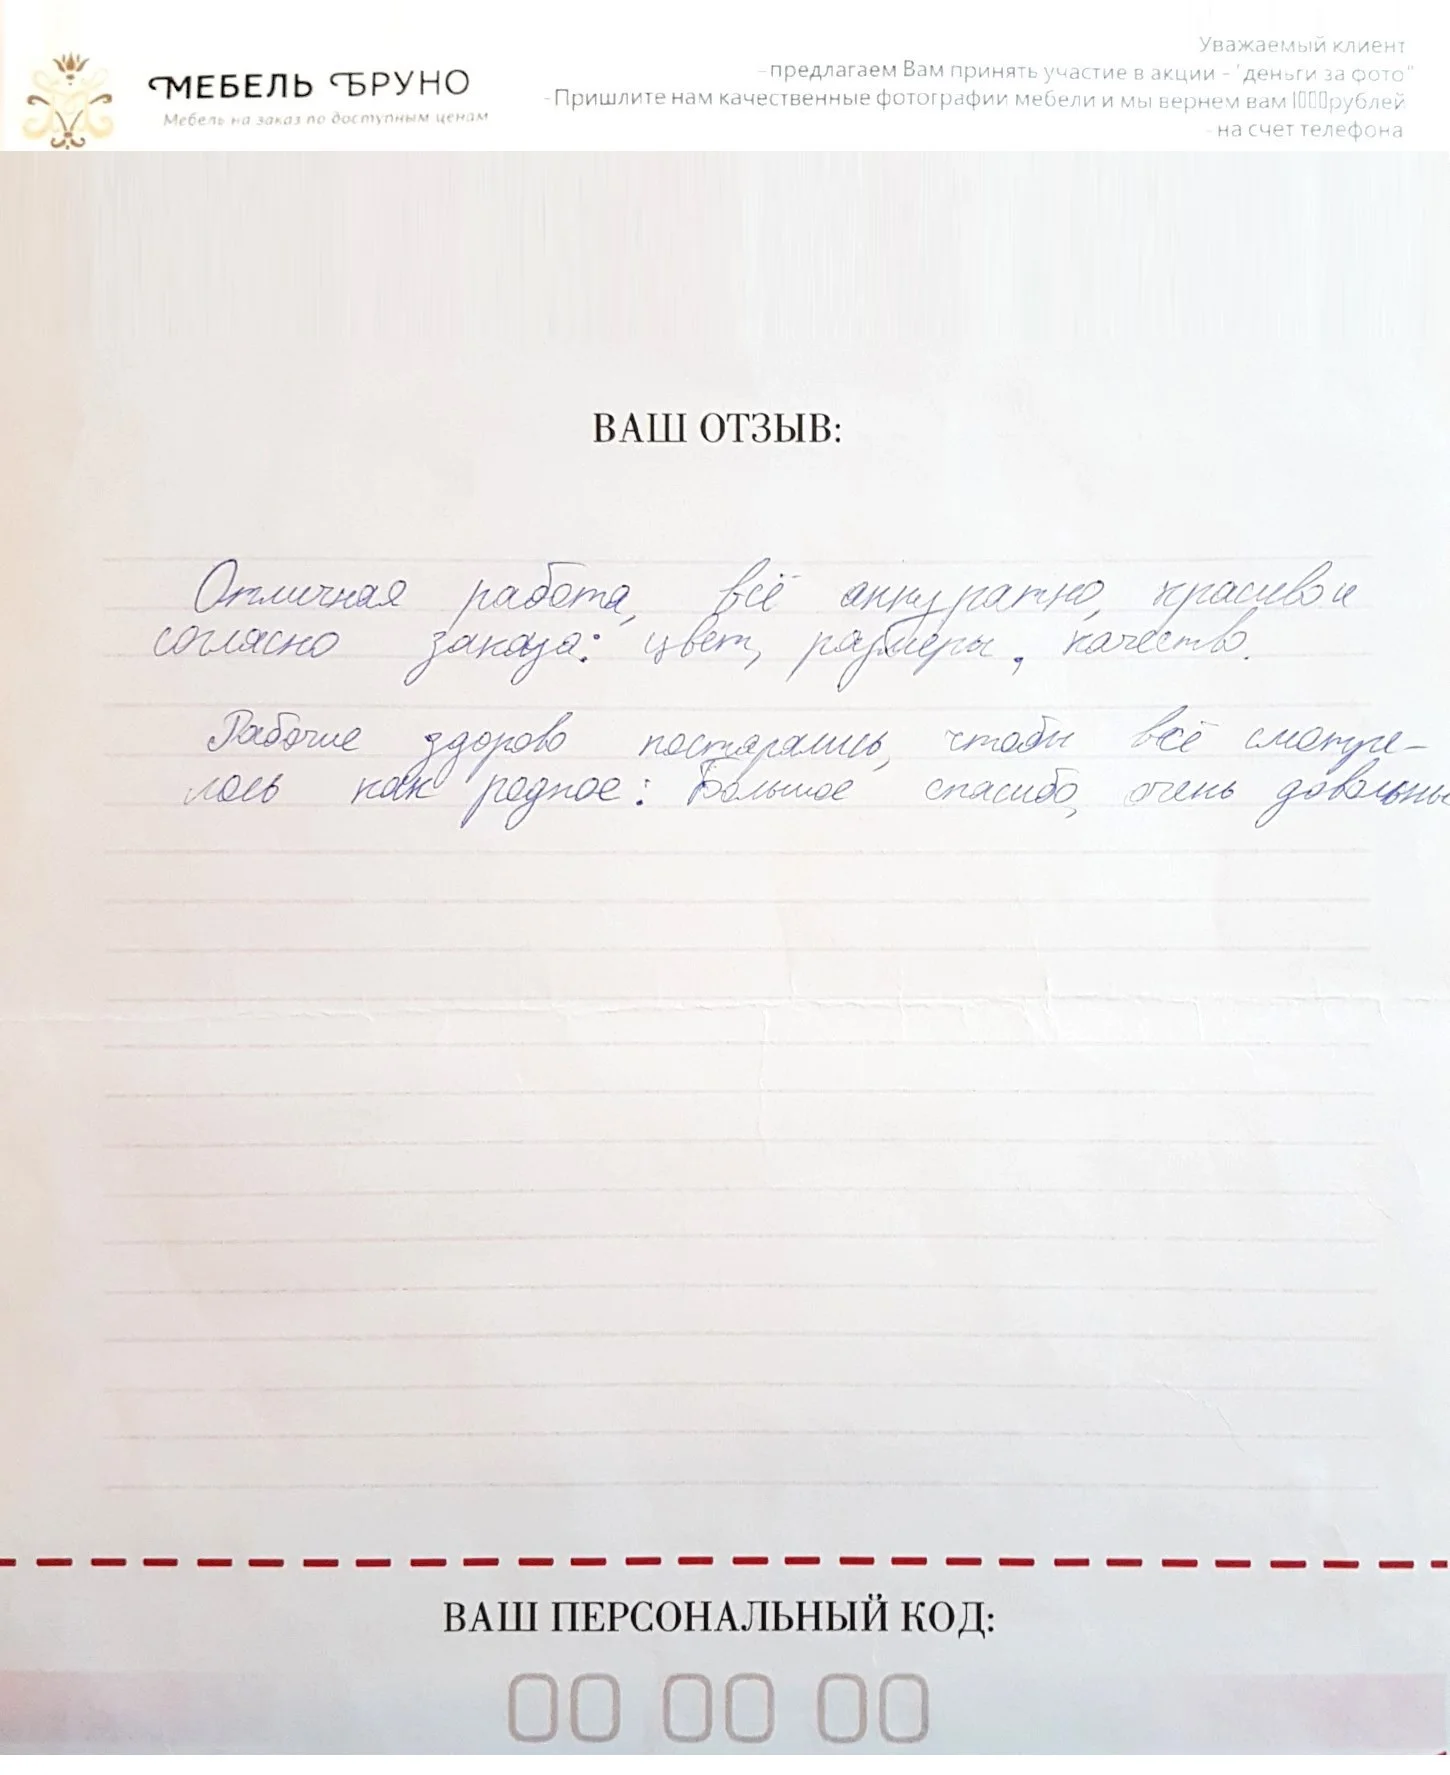 Уважаемый клиент
МЕБЕЛЬ БРУНО
Мебель на заказ по доступным ценам
-предлагаем Вам принять участие в акции - "деньги за фото"
-Пришлите нам качественные фотографии мебели и мы вернем вам рублей
-на счет телефона
ВАШ ОТЗЫВ:
Отличная работа, всё аккуратно, красиво и
согласно заказа: цвет, размеры, качество.
Рабочие здорово постарались, чтобы всё смотре-
лось как родное: Большое спасибо, очень довольны
ВАШ ПЕРСОНАЛЬНЫЙ КОД:
00 00 00